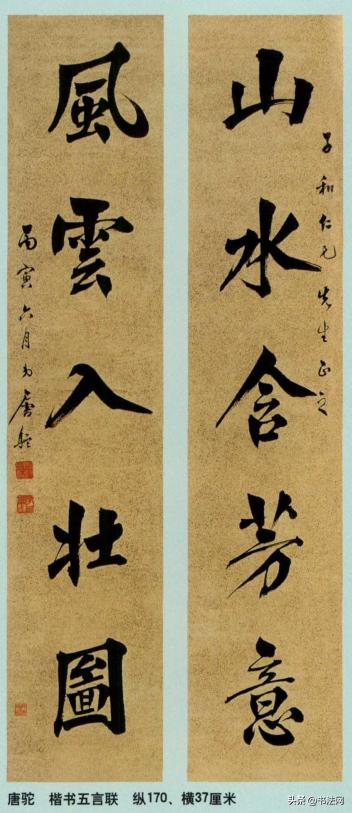 山水含芳意
子和仁兄先生正之
風雲入壮圖
丙寅六月弟唐駝
唐驼 楷书五言联 纵170、横37厘米
头条@书法网